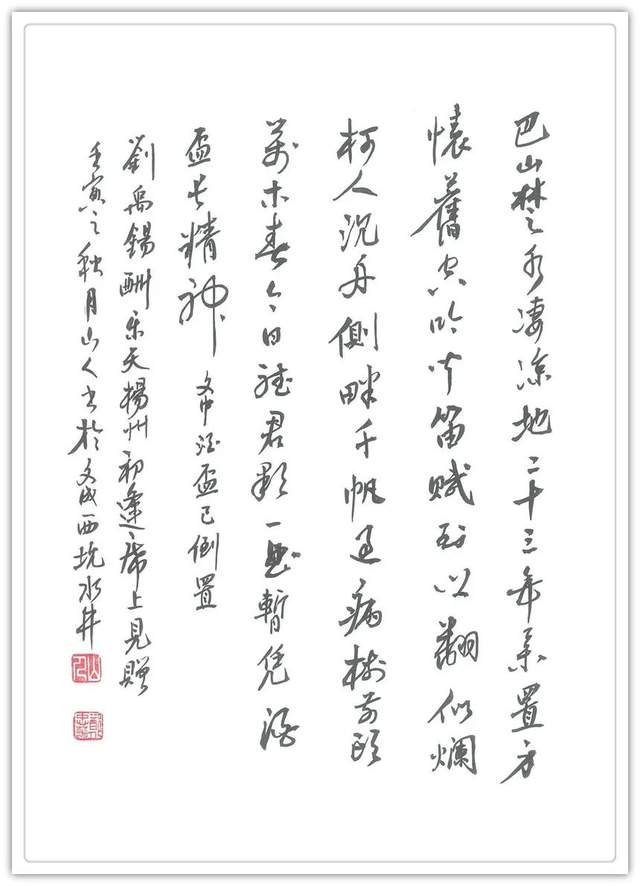 巴山楚水淒涼地二十三年棄置身
懷舊空吟聞笛賦到鄉翻似爛
柯人沉舟側畔千帆過病樹前頭
萬木春今日聽君歌一曲暫凭酒
盃長精神 文中酒盃已倒置
劉禹錫酬樂天楊州初逢席上見贈
壬寅之秋月山人書於文成西坑水井